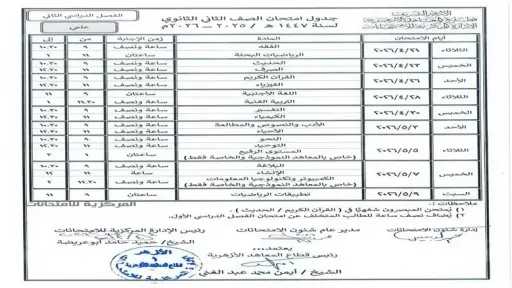 الأزهر الشريف
جدول امتحان الصف الثاني الثانوي
لسنة ١٤٤٧ هـ / ٢٠٢٥ – ٢٠٢٦م
الفصل الدراسي الثاني
علمي
أيام الامتحان المادة زمن الإجابة من إلى
الثلاثاء ٢٠٢٦/٤/٢١ الفقه ساعة ونصف ٩ ١٠.٣٠
الرياضيات البحتة ساعتان ١١ ١
الخميس ٢٠٢٦/٤/٢٣ الحديث ساعة ونصف ٩ ١٠.٣٠
الصرف ساعة ونصف ١١ ١٢.٣٠
الأحد ٢٠٢٦/٤/٢٦ القرآن الكريم ساعة ونصف ٩ ١٠.٣٠
الفيزياء ساعة ونصف ١١ ١٢.٣٠
الثلاثاء ٢٠٢٦/٤/٢٨ اللغة الأجنبية ساعتان ٩ ١١
التربية الفنية ساعة ونصف ١١.٣٠ ١
الخميس ٢٠٢٦/٤/٣٠ التفسير ساعة ونصف ٩ ١٠.٣٠
الكيمياء ساعة ونصف ١١ ١٢.٣٠
الأحد ٢٠٢٦/٥/٣ الأدب والنصوص والمطالعة ساعة ونصف ٩ ١٠.٣٠
الأحياء ساعة ونصف ١١ ١٢.٣٠
الثلاثاء ٢٠٢٦/٥/٥ النحو ساعة ونصف ٩ ١٠.٣٠
التوحيد ساعة ونصف ١١ ١٢.٣٠
المستوى الرفيع
(خاص بالمعاهد النموذجية والخاصة فقط) ساعتان
الخميس ٢٠٢٦/٥/٧ البلاغة ساعة ونصف ٩ ١٠.٣٠
الإنشاء ساعة ١١ ١٢
الكمبيوتر وتكنولوجيا المعلومات
(خاص بالمعاهد النموذجية والخاصة فقط) ساعة ونصف
السبت ٢٠٢٦/٥/٩ تطبيقات الرياضيات ساعتان ٩ ١١
١) يمتحن المبصرون شفهيًا في ( القرآن الكريم / الحديث ).
٢) يضاف نصف ساعة للطالب المتخلف عن امتحان الفصل الدراسي الأول.
المركزية للامتحانات
إدارة شئون الامتحانات
مدير عام شئون الامتحانات
رئيس الإدارة المركزية للامتحانات
الشيخ/ حميد حامد أبو عريضة
يعتمد،،،
رئيس قطاع المعاهد الأزهرية
الشيخ / أيمن محمد عبد الغني
الأزهر